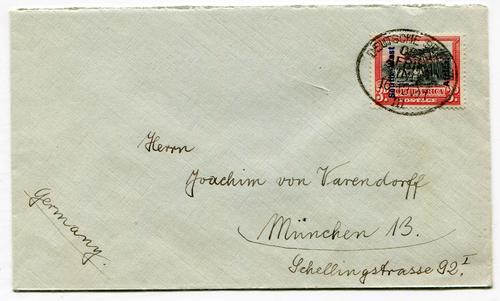 DEUTSCHE
AFRICA
POSTAGE
Herrn
Joachim von Varendorff
München 13.
Schellingstrasse 92 I
Germany.